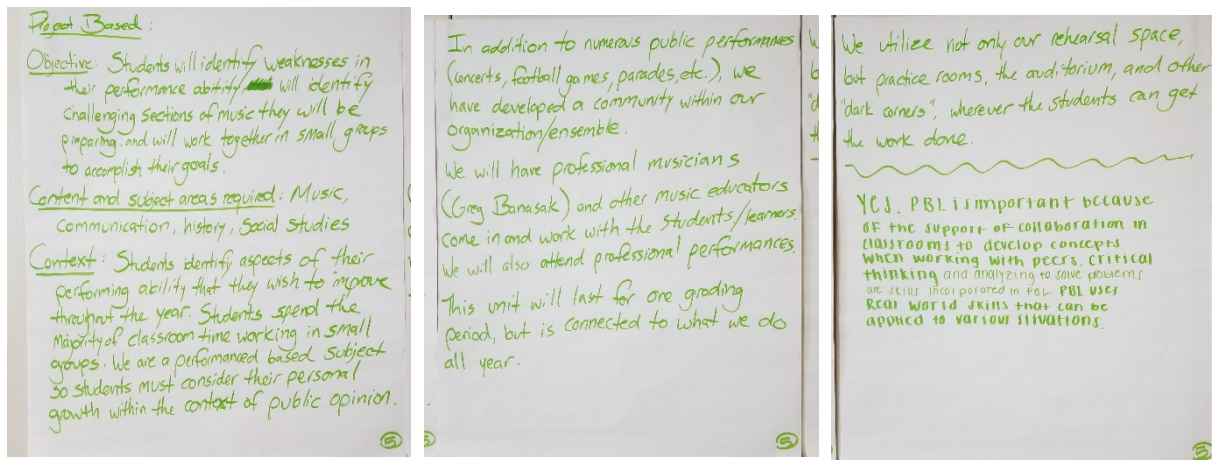 Project Based:
Objective: Students will identify weaknesses in
their performance ability, will identify
challenging sections of music they will be
preparing, and will work together in small groups
to accomplish their goals.
Content and subject areas required: Music,
Communication, history, Social Studies
Context: Students identify aspects of their
performing ability that they wish to improve
throughout the year. Students spend the
majority of classroom time working in small
groups. We are a performanced based subject
so students must consider their personal
growth within the context of public opinion.
5
In addition to numerous public performances
(concerts, football games, parades, etc.), we
have developed a community within our
organization/ensemble.
We will have professional musicians
(Greg Banasak) and other music educators
come in and work with the students/learners.
We will also attend professional performances.
This unit will last for one grading
period, but is connected to what we do
all year.
5
We utilize not only our rehearsal space,
but practice rooms, the auditorium, and other
"dark corners", wherever the students can get
the work done.
Yes. PBL is important because
of the support of collaboration in
classrooms to develop concepts
when working with peers. Critical
thinking and analyzing to solve problems
are skills incorporated in PBL. PBL uses
Real world skills that can be
applied to various situations.
5